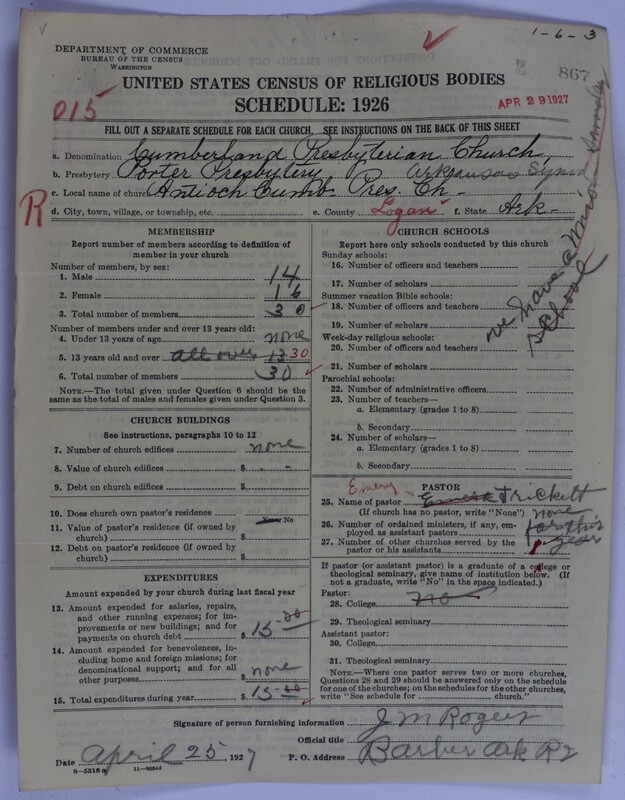 1-6-3
DEPARTMENT OF COMMERCE
BUREAU OF THE CENSUS
WASHINGTON
867
UNITED STATES CENSUS OF RELIGIOUS BODIES
SCHEDULE: 1926
APR 29 1927
015
FILL OUT A SEPARATE SCHEDULE FOR EACH CHURCH. SEE INSTRUCTIONS ON THE BACK OF THIS SHEET
a. Denomination Cumberland Presbyterian Church
b. Presbytery Porter Presbytery Arkansas Synod
c. Local name of church Antioch Cumb- Pres. Ch-
R
d. City, town, village, or township, etc. e. County Logan f. State Ark-
MEMBERSHIP
Report number of members according to definition of
member in your church
Number of members, by sex:
1. Male 14
2. Female 16
3. Total number of members 30
Number of members under and over 13 years old:
4. Under 13 years of age none
5. 13 years old and over all over 13 30
6. Total number of members 30
NOTE.—The total given under Question 6 should be the
same as the total of males and females given under Question 3.
CHURCH BUILDINGS
See instructions, paragraphs 10 to 12
7. Number of church edifices none
8. Value of church edifices $ - -
9. Debt on church edifices $
10. Does church own pastor's residence
No
11. Value of pastor's residence (if owned by
church) $
12. Debt on pastor's residence (if owned by
church) $
EXPENDITURES
Amount expended by your church during last fiscal year
13. Amount expended for salaries, repairs,
and other running expenses; for im-
provements or new buildings; and for
payments on church debt $ 15-00
14. Amount expended for benevolences, in-
cluding home and foreign missions; for
denominational support; and for all
other purposes $ none
15. Total expenditures during year $ 15-00
CHURCH SCHOOLS
Report here only schools conducted by this church
Sunday schools:
16. Number of officers and teachers
17. Number of scholars
Summer vacation Bible schools:
18. Number of officers and teachers
19. Number of scholars
Week-day religious schools:
20. Number of officers and teachers
21. Number of scholars
Parochial schools:
22. Number of administrative officers
23. Number of teachers—
a. Elementary (grades 1 to 8)
b. Secondary
24. Number of scholars—
a. Elementary (grades 1 to 8)
b. Secondary
we have a Union Sunday
School
PASTOR
Emery
25. Name of pastor Trickett
(If church has no pastor, write "None") none
26. Number of ordained ministers, if any, em-
ployed as assistant pastors for this
27. Number of other churches served by the year
pastor or his assistants 1
If pastor (or assistant pastor) is a graduate of a college or
theological seminary, give name of institution below. (If
not a graduate, write "No" in the space indicated.)
Pastor:
28. College no
29. Theological seminary
Assistant pastor:
30. College
31. Theological seminary
NOTE.—Where one pastor serves two or more churches,
Questions 28 and 29 should be answered only on the schedule
for one of the churches; on the schedules for the other churches,
write "See schedule for church."
Signature of person furnishing information J M Rogers
Official title
Date April 25, 1927 P. O. Address Barber Ark R2
8-5518 11-9054